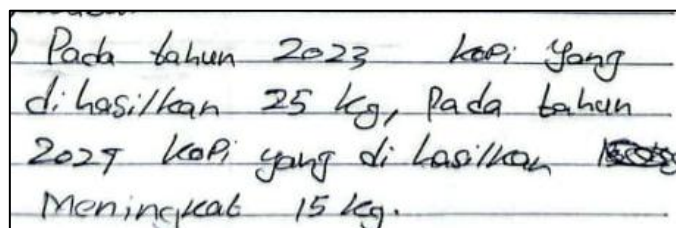 ) Pada tahun 2023 kopi yang
dihasilkan 25 kg, Pada tahun
2024 kopi yang di hasilkan
Meningkat 15 kg.